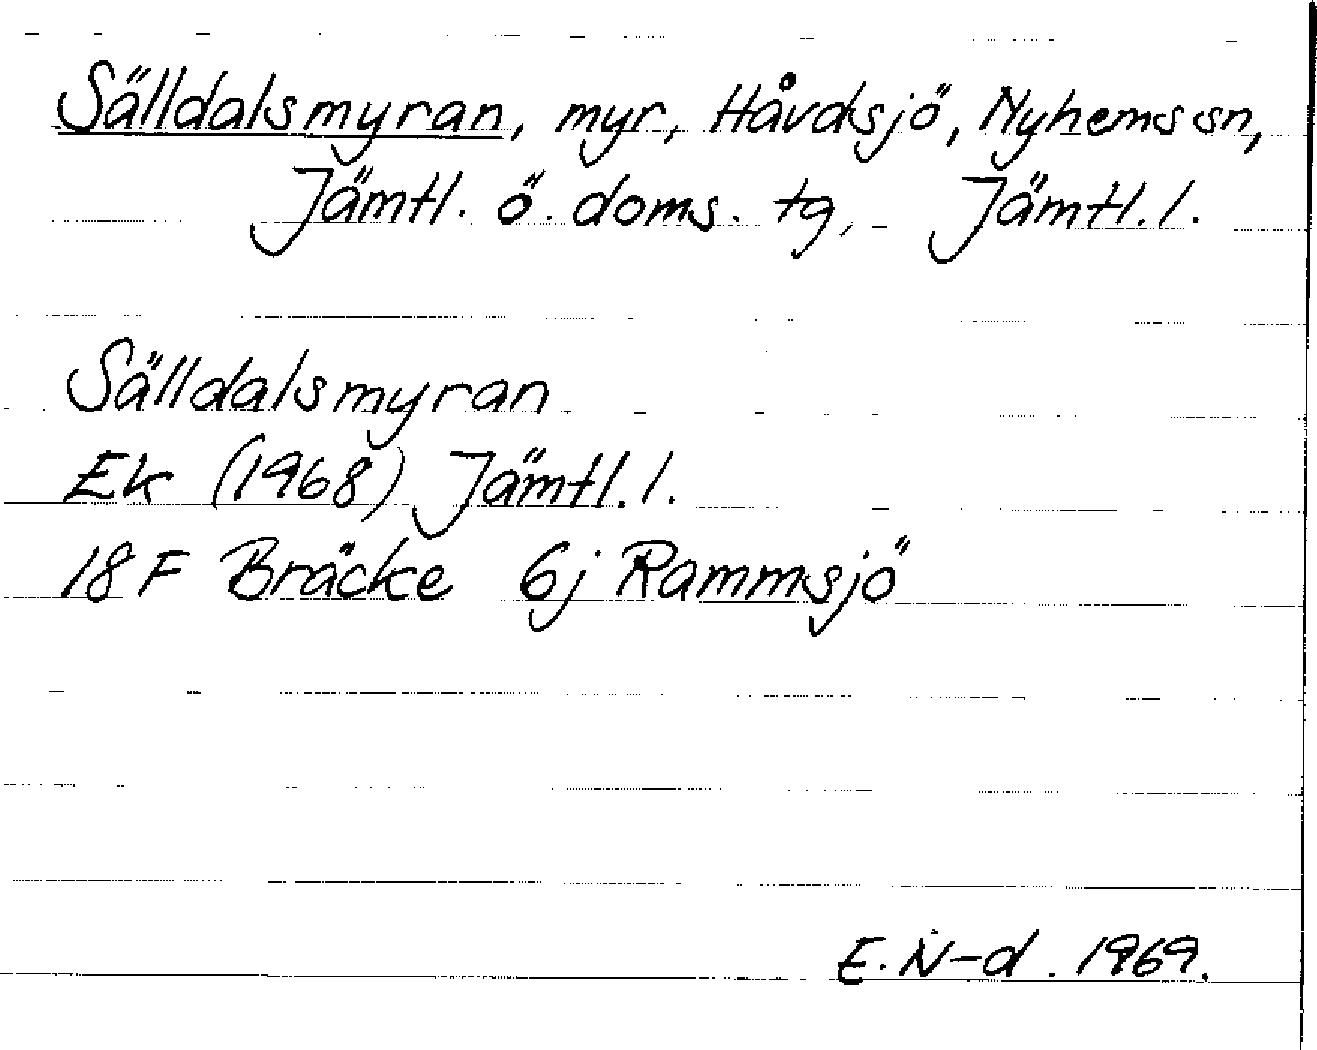 Sälldalsmyran, myr, Håvdsjö, Nyhems sn,
Jämtl. ö. doms. tg, Jämtl. l.
Sälldalsmyran
Ek (1968) Jämtl. l.
18 F Bräcke 6j Rammsjö
E. N-d. 1969.